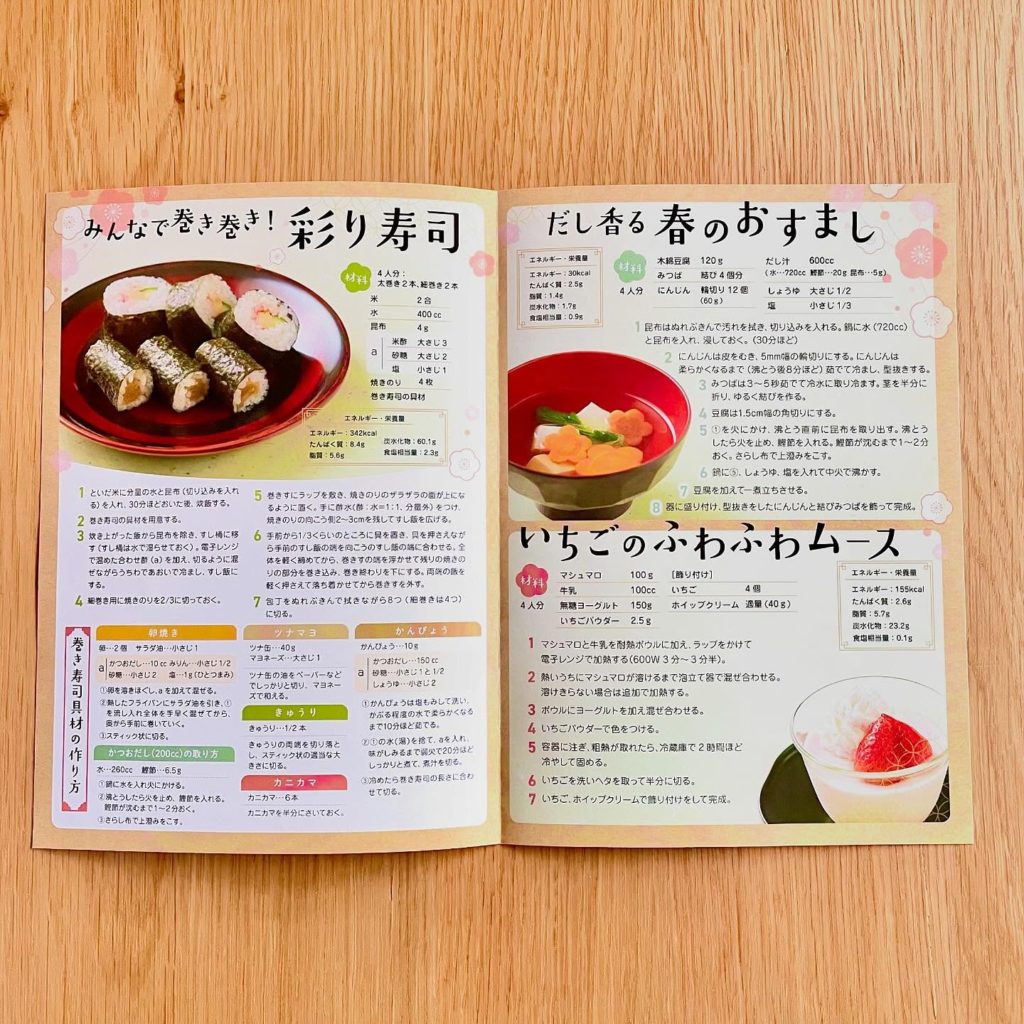 みんなで巻き巻き！ 彩り寿司
材料
4人分：
太巻き2本、細巻き2本
米 2合
水 400cc
昆布 4g
a
米酢 大さじ3
砂糖 大さじ2
塩 小さじ1
焼きのり 4枚
巻き寿司の具材
エネルギー・栄養量
エネルギー：342kcal
たんぱく質：8.4g
脂質：5.6g
炭水化物：60.1g
食塩相当量：2.3g
1 といだ米に分量の水と昆布（切り込みを入れ
る）を入れ、30分ほどおいた後、炊飯する。
2 巻き寿司の具材を用意する。
3 炊き上がった飯から昆布を除き、すし桶に移
す（すし桶は水で湿らせておく）。電子レンジ
で温めた合わせ酢（a）を加え、切るように混
ぜながらうちわであおいで冷まし、すし飯に
する。
4 細巻き用に焼きのりを2/3に切っておく。
5 巻きすにラップを敷き、焼きのりのザラザラの面が上にな
るように置く。手に酢水（酢：水＝1：1、分量外）をつけ、
焼きのりの向こう側2〜3cmを残してすし飯を広げる。
6 手前から1/3くらいのところに具を置き、具を押さえなが
ら手前のすし飯の端を向こうのすし飯の端に合わせる。全
体を軽く締めてから、巻きすの端を浮かせて残りの焼きの
りの部分を巻き込み、巻き終わりを下にする。両端の飯を
軽く押さえて落ち着かせてから巻きすを外す。
7 包丁をぬれぶきんで拭きながら8つ（細巻きは4つ）
に切る。
巻き寿司具材の作り方
卵焼き
卵…2個 サラダ油…小さじ1
a
かつおだし…10cc みりん…小さじ1/2
砂糖…小さじ2 塩…1g（ひとつまみ）
①卵を溶きほぐし、aを加えて混ぜる。
②熱したフライパンにサラダ油を引き、①
を流し入れ全体を手早く混ぜてから、
奥から手前に巻いていく。
③スティック状に切る。
かつおだし（200cc）の取り方
水…260cc 鰹節…6.5g
①鍋に水を入れ火にかける。
②沸とうしたら火を止め、鰹節を入れる。
鰹節が沈むまで1〜2分おく。
③さらし布で上澄みをこす。
ツナマヨ
ツナ缶…40g
マヨネーズ…大さじ1
ツナ缶の油をペーパーなど
でしっかりと切り、マヨネー
ズで和える。
きゅうり
きゅうり…1/2本
きゅうりの両端を切り落と
し、スティック状の適当な大
きさに切る。
カニカマ
カニカマ…6本
カニカマを半分にさいておく。
かんぴょう
かんぴょう…10g
a
かつおだし…150cc
砂糖…小さじ1と1/2
しょうゆ…小さじ2
①かんぴょうは塩もみして洗い、
かぶる程度の水で柔らかくなる
まで10分ほど茹でる。
②①の水（湯）を捨て、aを入れ、
味がしみるまで弱火で20分ほど
しっかりと煮て、煮汁を切る。
③冷めたら巻き寿司の長さに合わ
せて切る。
だし香る 春のおすまし
エネルギー・栄養量
エネルギー：30kcal
たんぱく質：2.5g
脂質：1.4g
炭水化物：1.7g
食塩相当量：0.9g
材料
4人分
木綿豆腐 120g
みつば 結び4個分
にんじん 輪切り12個
（60g）
だし汁 600cc
（水…720cc 鰹節…20g 昆布…5g）
しょうゆ 大さじ1/2
塩 小さじ1/3
1 昆布はぬれぶきんで汚れを拭き、切り込みを入れる。鍋に水（720cc）
と昆布を入れ、浸しておく。（30分ほど）
2 にんじんは皮をむき、5mm幅の輪切りにする。にんじんは
柔らかくなるまで（沸とう後8分ほど）茹でて冷まし、型抜きする。
3 みつばは3〜5秒茹でて冷水に取り冷ます。茎を半分に
折り、ゆるく結びを作る。
4 豆腐は1.5cm幅の角切りにする。
5 ①を火にかけ、沸とう直前に昆布を取り出す。沸と
うしたら火を止め、鰹節を入れる。鰹節が沈むまで1〜2分
おく。さらし布で上澄みをこす。
6 鍋に⑤、しょうゆ、塩を入れて中火で沸かす。
7 豆腐を加えて一煮立ちさせる。
8 器に盛り付け、型抜きをしたにんじんと結びみつばを飾って完成。
いちごのふわふわムース
材料
4人分
マシュマロ 100g
牛乳 100cc
無糖ヨーグルト 150g
いちごパウダー 2.5g
［飾り付け］
いちご 4個
ホイップクリーム 適量（40g）
エネルギー・栄養量
エネルギー：155kcal
たんぱく質：2.6g
脂質：5.7g
炭水化物：23.2g
食塩相当量：0.1g
1 マシュマロと牛乳を耐熱ボウルに加え、ラップをかけて
電子レンジで加熱する（600W 3分〜3分半）。
2 熱いうちにマシュマロが溶けるまで泡立て器で混ぜ合わせる。
溶けきらない場合は追加で加熱する。
3 ボウルにヨーグルトを加え混ぜ合わせる。
4 いちごパウダーで色をつける。
5 容器に注ぎ、粗熱が取れたら、冷蔵庫で2時間ほど
冷やして固める。
6 いちごを洗いヘタを取って半分に切る。
7 いちご、ホイップクリームで飾り付けをして完成。